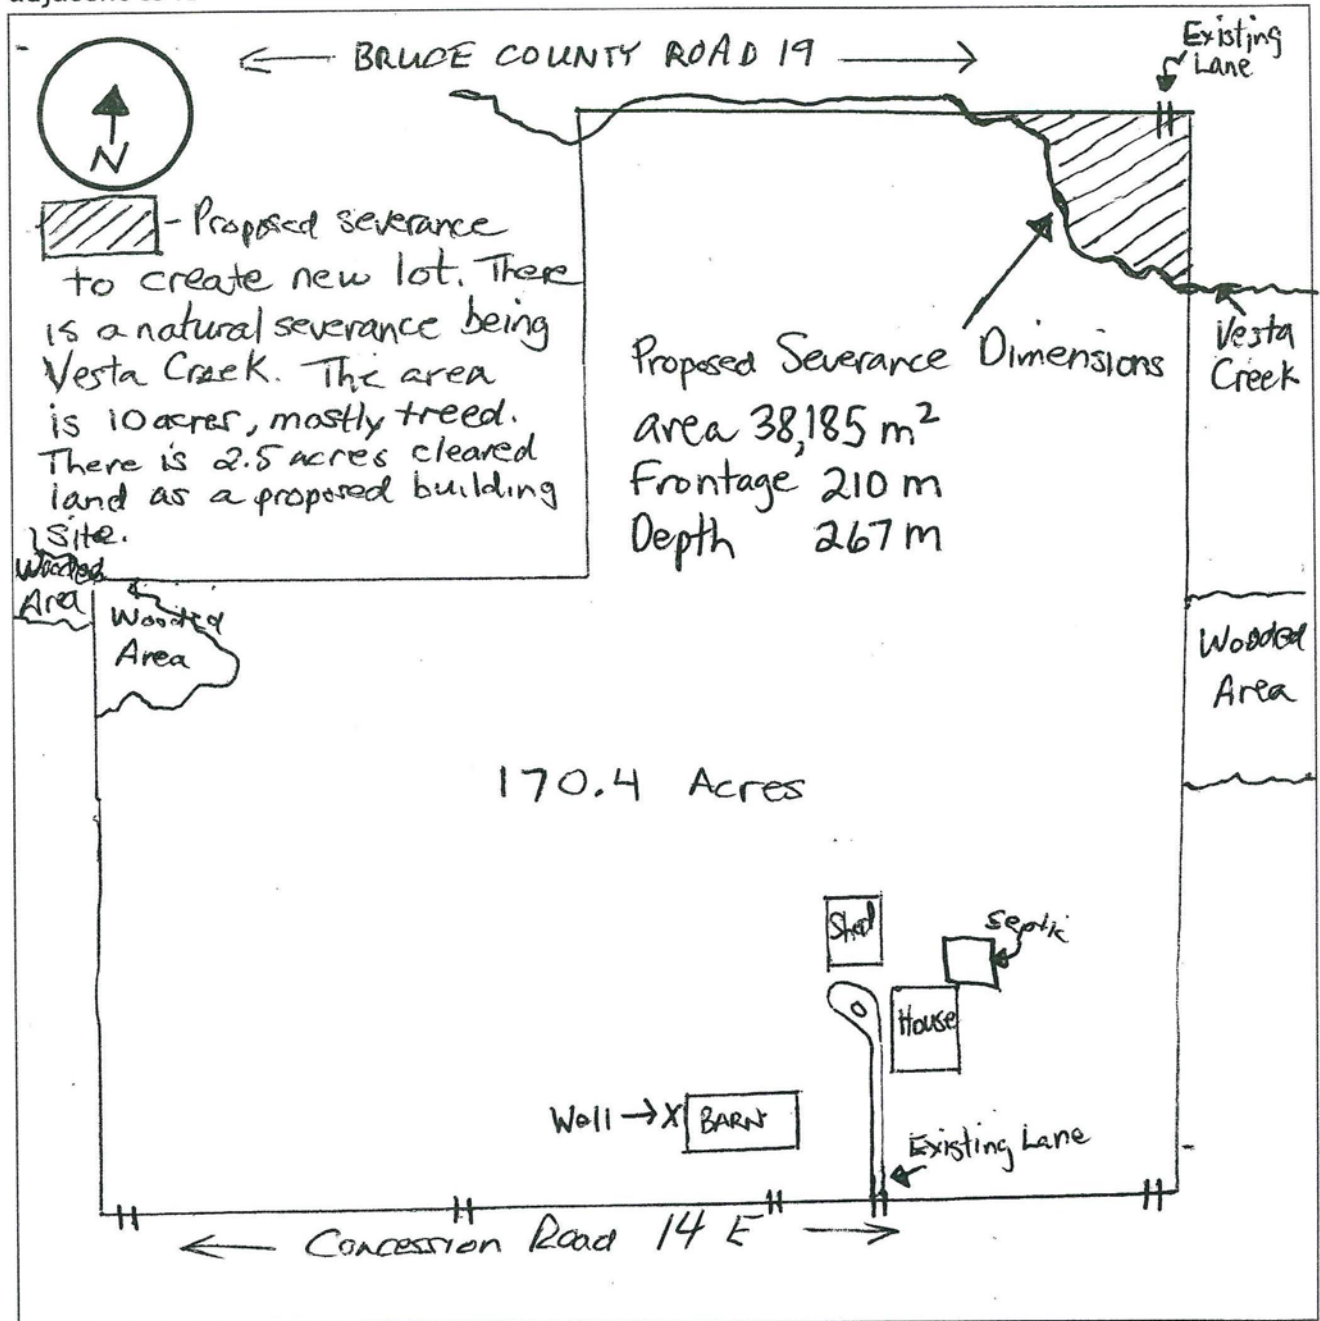 BRUCE COUNTY ROAD 19
Existing
Lane
N
- Proposed severance
to create new lot. There
is a natural severance being
Vesta Creek. The area
is 10 acres, mostly treed.
There is 2.5 acres cleared
land as a proposed building
site.
Proposed Severance Dimensions
area 38,185 m²
Frontage 210 m
Depth 267 m
Vesta
Creek
Wooded
Area
Wooded
Area
Wooded
Area
170.4 Acres
Shed
Septic
House
Well → X
BARN
Existing Lane
Concession Road 14 E